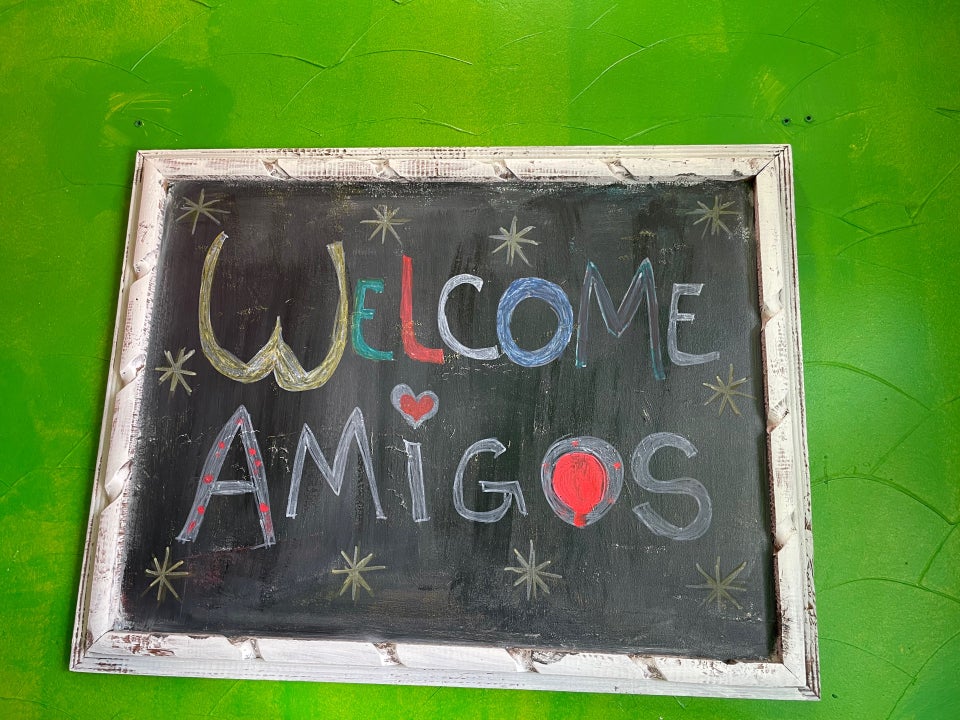 WELCOME
AMiGOS